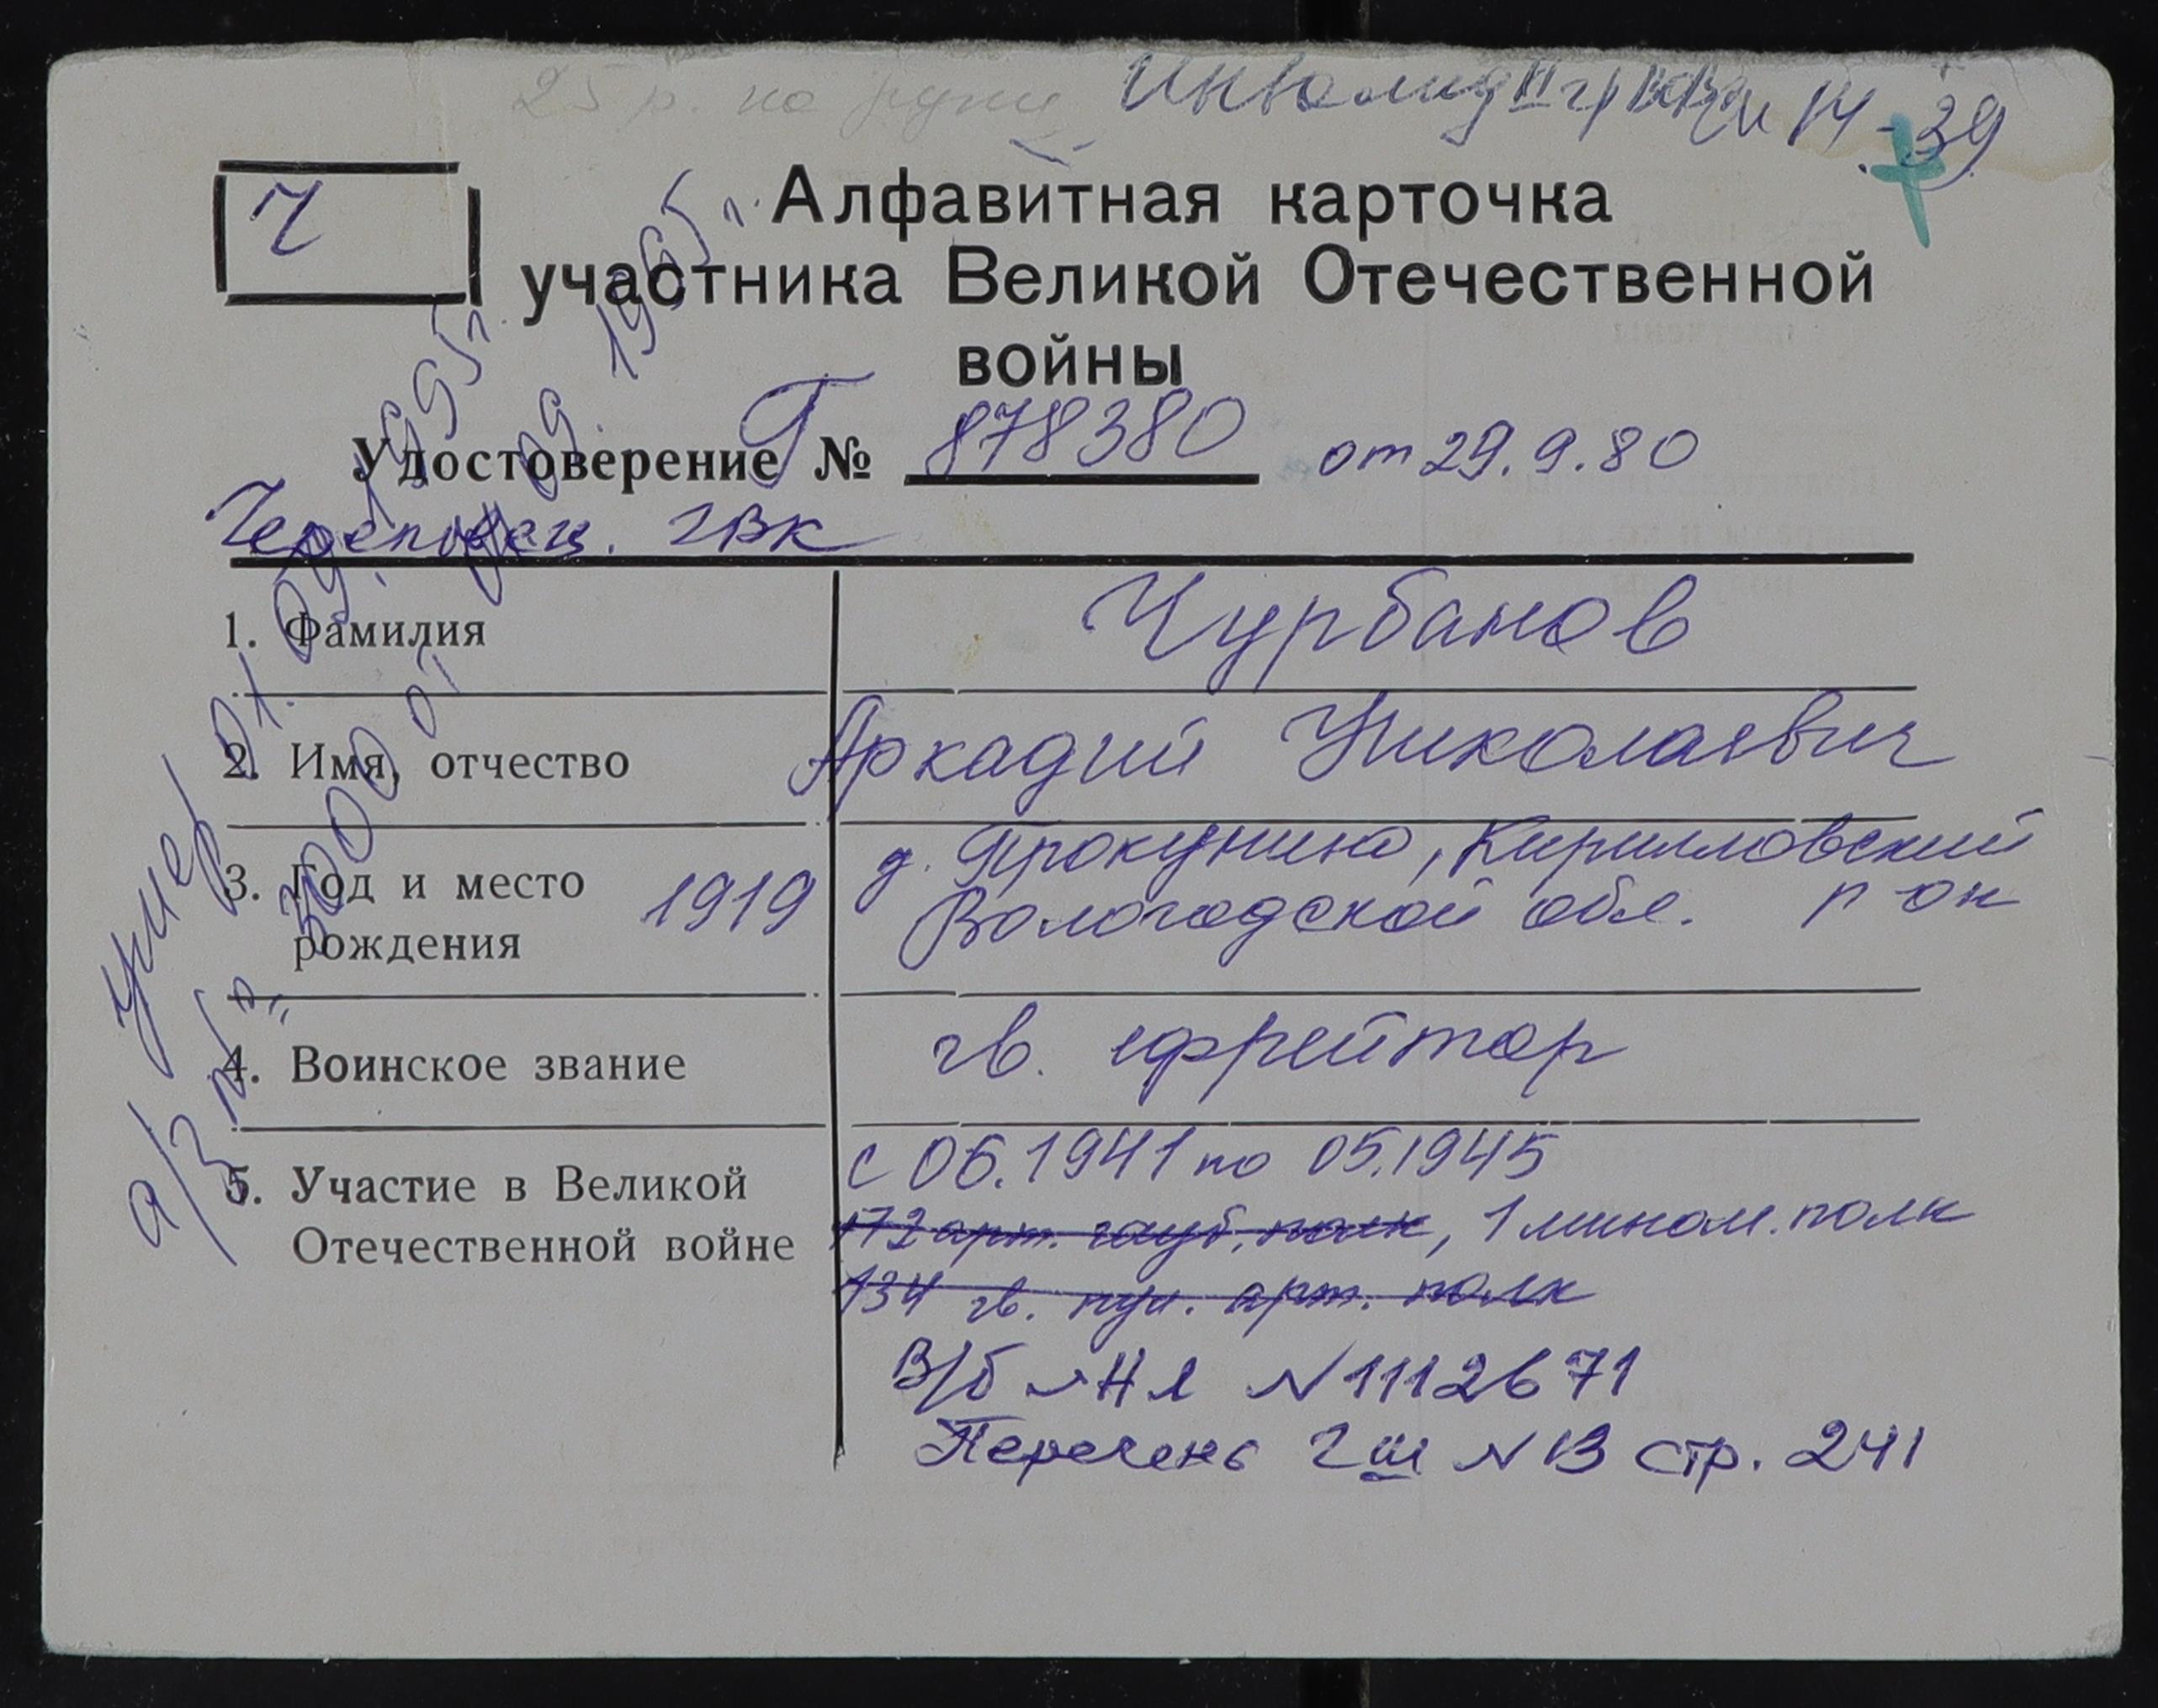 25 р. на руки Инвалид II гр ВОВ 14-39
Ч
Алфавитная карточка
участника Великой Отечественной
войны
Удостоверение Г № 878380 от 29.9.80
Череповец. ГВК
1. Фамилия Чурбанов
2. Имя, отчество Аркадий Николаевич
3. Год и место рождения 1919 д. Прокунино, Кирилловский р-он
Вологодской обл.
4. Воинское звание гв. ефрейтор
5. Участие в Великой Отечественной войне с 06.1941 по 05.1945
172 арт. гауб. полк, 1 мином. полк
134 гв. пуш. арт. полк
В/б НЛ №1112671
Перечень ГШ №13 стр. 241
умер 01.09.1995 г.